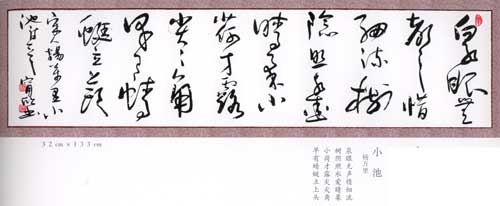 泉眼無
聲惜
細流樹
陰照水愛
晴柔小
荷才露
尖尖角
早有蜻
蜓立上頭
宋楊萬里小
池
32cm×133cm
小池
杨万里
泉眼无声惜细流
树阴照水爱晴柔
小荷才露尖尖角
早有蜻蜓立上头